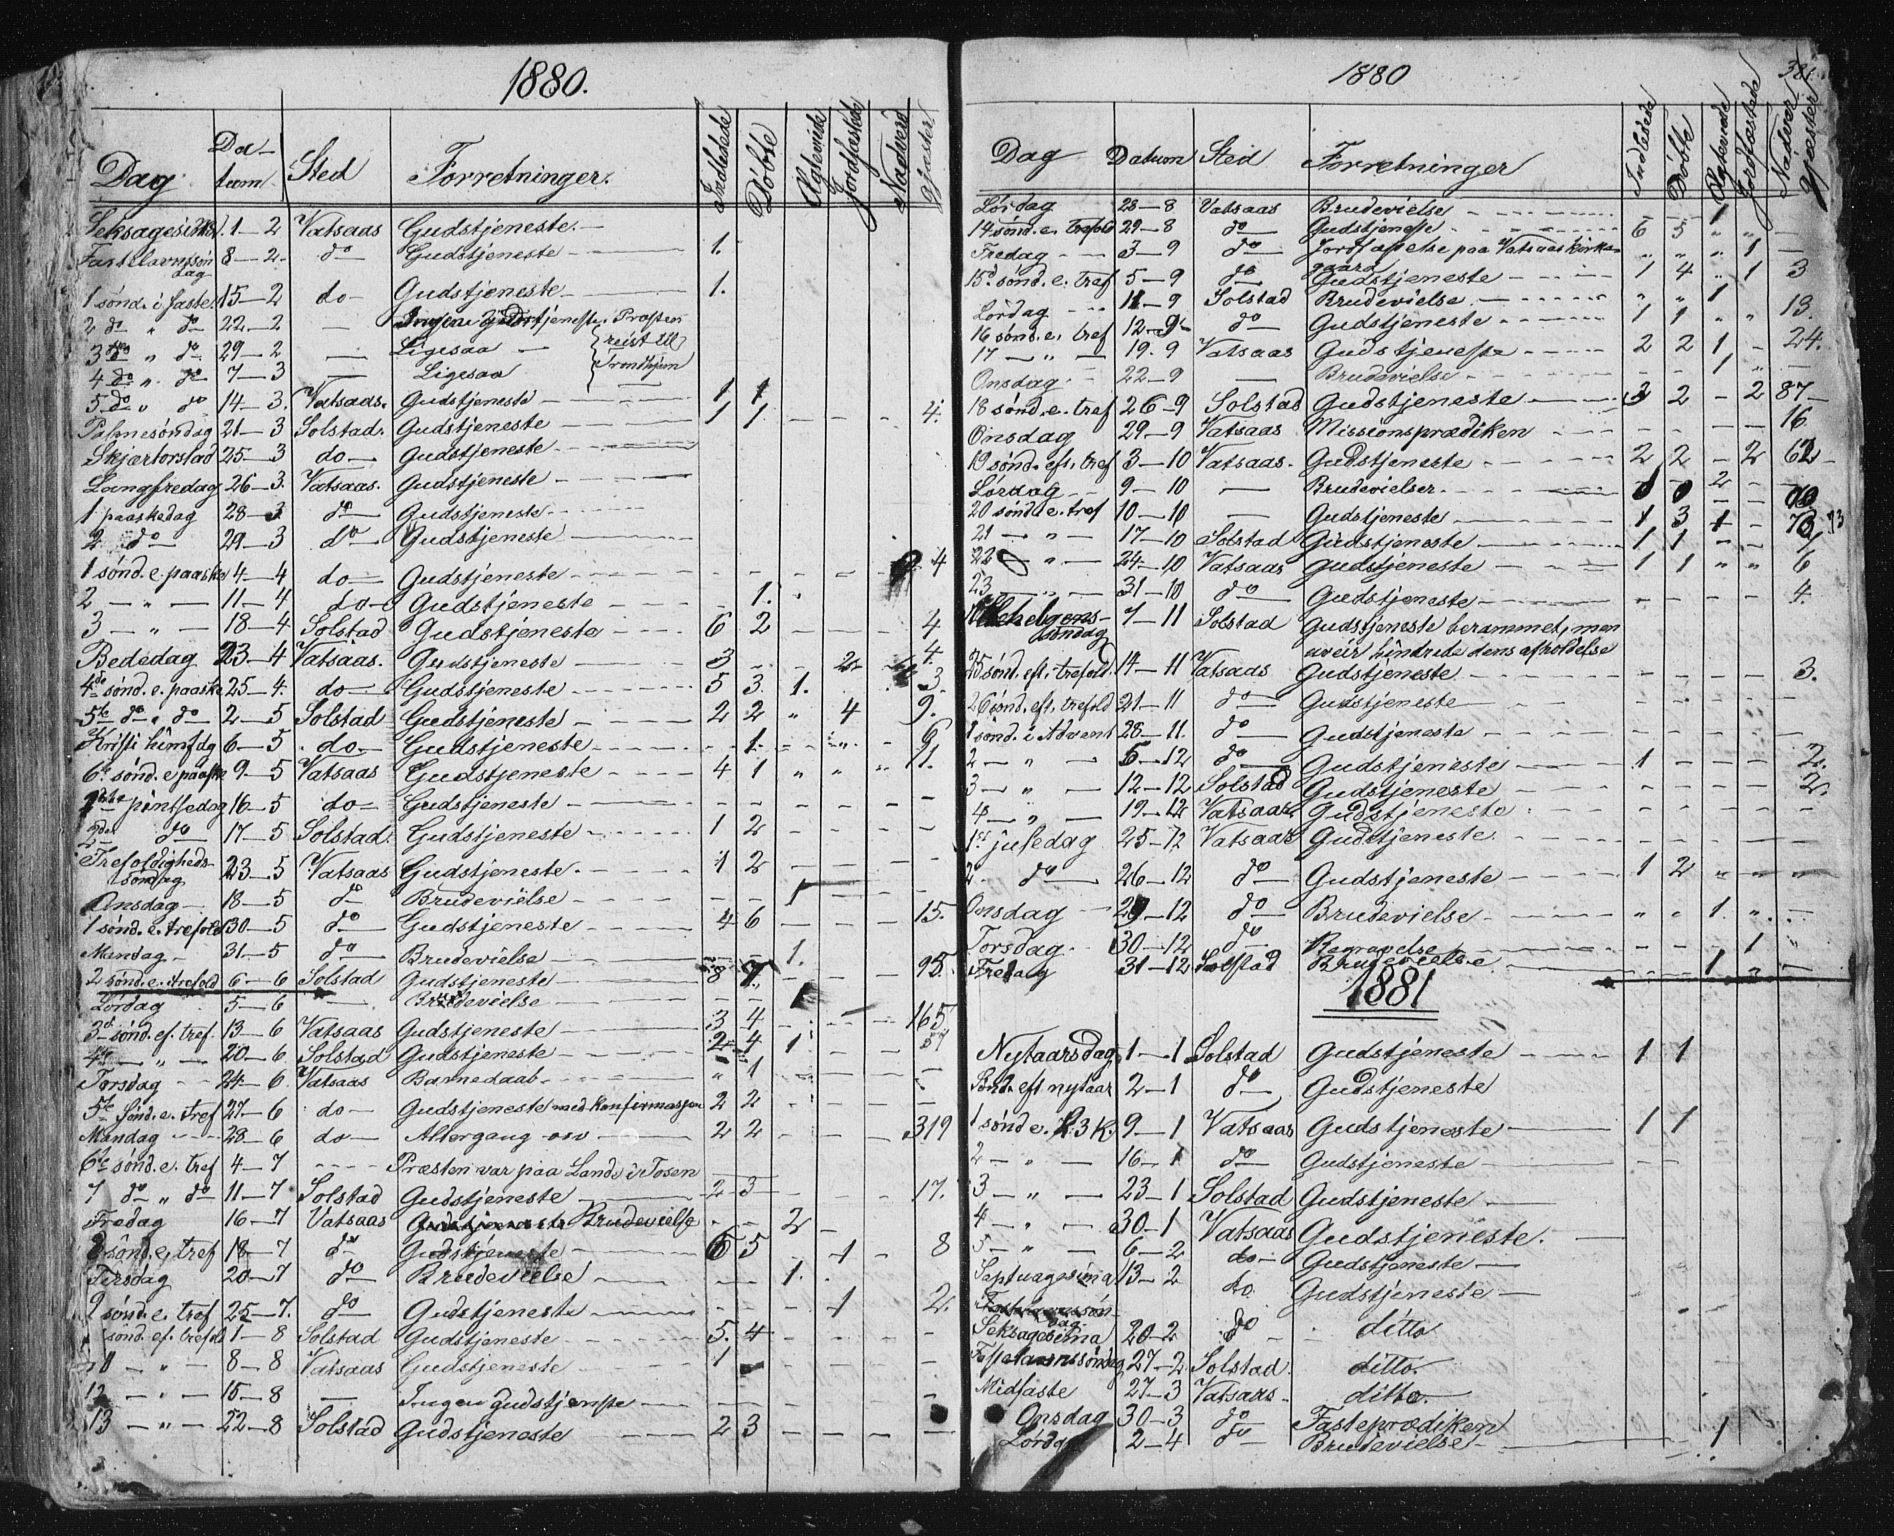 1880.
Dag Datum Sted Forretninger. Indledede Døbte Ægteviede Jordfæstede Nadverd Gjæster
Seksagesima 1–2 Vatsaas Gudstjeneste. –
Fastelavnssøndag 8–2 do Gudstjeneste – 1.
1 sønd. i faste. 15–2 do – Gudstjeneste – 1.
2 do " do 22–2 – Ingen gudstjeneste. Præsten
3 do " do 29–2 – Ligesaa – reist til
4 do " do 7–3 – Ligesaa Trondhjem
5 do " do 14–3. Vatsaas. Gudstjeneste – 1 1
Palmesøndag 21–3 Solstad. Gudstjeneste – 1 1 – – – 4.
Skjærtorstad 25–3 do – Gudstjeneste –
Langfredag 26–3. Vatsaas. Gudstjeneste –
1 paaskedag 28–3 do Gudstjeneste –
2 do 29–3 do Gudstjeneste –
1 sønd. e. paaske 4–4 do – Gudstjeneste – – – – 4
2 – " – 11–4 do – Gudstjeneste – 1.
3 – " – 18–4 Solstad Gudstjeneste – 6 2 4
Bededag 23–4 Vatsaas. Gudstjeneste – 3 – – 2 4.
4de sønd. e. paaske 25–4. do – Gudstjeneste – 5 3. 1. 3.
5te do " do 2–5 Solstad Gudstjeneste – 2 2 " 4 9.
Kristi himfdg 6–5 do – Gudstjeneste – – 1. – " – 6
6te sønd. e paaske 9–5 Vatsaas Gudstjeneste – 4 1 " " " 11.
1ste pintsedag 16–5 do – Gudstjeneste – – – – – –
2den do 17–5 Solstad. Gudstjeneste – 1 2 – – – –
Trefoldighedssøndag 23–5 Vatsaas Gudstjeneste. – 1 2 – – –
Onsdag – 18–5 do Brudevielse – – – 1 – –
1 sønd. e. trefold 30–5 do Gudstjeneste – 4 6 – – – 15.
Mandag – 31–5 do Brudevielse – – – 1.
2 sønd. e. trefold 6–6 Solstad Gudstjeneste – 8 7. – – – 95.
Lørdag 5–6 – Brudevielse – – – 1 –
3d sønd. ef. tref. 13–6 Vatsaas Gudstjeneste – 3 4 – – – 165
4de – " – 20–6 Solstad Gudstjeneste – 2 4 1 – – 57
Torsdag – 24–6. Vatsaas Barnedaab – " 1 – – –
5te Sønd. e. tref 27–6 do – Gudstjeneste med konfirmasjon 2 2 – – –
Mandag – 28–6 do – Altergang osv – 2 2 – – – 319
6te sønd. e. tref 4–7 – Præsten var paa Lands i Tosen
7 do " do 11–7 Solstad Gudstjeneste – 2 3 – – – 17.
Fredag 16–7 Vatsaas Gudstjeneste Brudevielse – – 2 –
8 sønd. e. tref 18–7 do Gudstjeneste – 6 5 1 – 8
Tirsdag 20–7 do Brudevielse – – – 1. .
9 sønd. e. tref 25–7. do Gudstjeneste – – – – 1 2.
sønd. ef. trefold 1–8 Solstad Gudstjeneste – 5. 4 – – – –
11 – " – 8–8 Vatsaas Gudstjeneste – 1 – – – –
12 – " – 15–8 – Ingen gudstjeneste – – – –
13 – " – 22–8 Solstad Gudstjeneste – 2 3 – – – –
1880 381.
Dag Datum Sted Forretninger Indledede Døbte Ægteviede Jordfæstede Nadver Gjæster
Lørdag 28–8 Vatsaas Brudevielse – 1
14 sønd. e. trefold 29–8 do Gudstjeneste – 6 5 " " –
Fredag – 3–9 do Jordfæstelse paa Vatsaas Kirke- " " " 1 –
gaard
15d sønd. e. tref 5–9 do Gudstjeneste – 1 4 " 1 3
Lørdag – 11–9 Solstad Brudevielse. – " " 1
16 sønd. e. tref 12–9 do Gudstjeneste – 1 1 " " 13.
17 – " – 19.9 Vatsaas Gudstjeneste – 2 2 1 – 24.
Onsdag – 22–9 – Brudevielse – 1 "
18 sønd. e. tref 26–9 Solstad Gudstjeneste – 3 2 – 2 87
Onsdag 29–9 Vatsaas Missionsprædiken – – – – 16
19 sønd. eft. tref 3–10 Vatsaas. Gudstjeneste – 2 2 – 2 62
Lørdag – 9–10 – Brudevielser. – 2 –
20 sønd. e. tref 10–10 – Gudstjeneste – 1 3 1 – 73
21 – " – 17–10 Solstad Gudstjeneste – 1 1 – – 4
22 – " – 24–10 Vatsaas Gudstjeneste – 1 1 " " 6
23 – " – 31–10 do Gudstjeneste – – – – – 4.
Allehelgens-søndag 7–11 Solstad Gudstjeneste berammet, men
uveir hindrede dens afholdelse
25 sønd. eft. trefold. 14–11 Vatsaas Gudstjeneste. – – – – – 3.
26 sønd. eft. trefold 21–11 do Gudstjeneste – – – – –
1 sønd. i Advent 28–11. do Gudstjeneste – – – – –
2 – " – 5–12 do Gudstjeneste – 1 – – – 2.
3 – " – 12–12 Solstad Gudstjeneste – – – – 2.
4 – " – 19–12 Vatsaas. Gudstjeneste – – – – –
1ste juledag 25–12 Vatsaas Gudstjeneste. – – – – –
2. do – 26–12 do Gudstjeneste – 1 2 " " "
Onsdag – 29–12 do Brudevielse – " " 1. " –
Torsdag. 30–12 do Begravelse 1 "
Fredag 31–12 Solstad Brudevielse 1 –
1881
Nytaarsdag 1–1 Solstad Gudstjeneste – 1 1
Sønd. eft nytaar 2–1 do Gudstjeneste
1 sønd e. H. 3 K. 9–1 Vatsaas Gudstjeneste – 1 1
2 – " – 16–1 do Gudstjeneste –
3 – " – 23–1 Solstad Gudstjeneste –
4 – " – 30–1 Vatsaas Gudstjeneste. –
5 – " – 6–2 do – Gudstjeneste –
Septuagesima 13–2 do. Gudstjeneste –
Seksagesima 20–2 do ditto
Fastelavnssøndag 27–2 Solstad. ditto.
Midfaste 27–3 Vatsaas. ditto.
Onsdag 30–3 do Fasteprædiken
Lørdag 2–4 do Brudevielse – 1